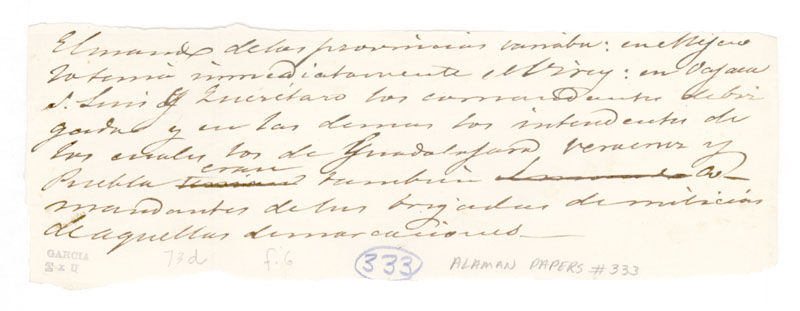 El mando de las provincias variaba: en Mejico
lo tenia inmediatamente el Virey: en Oajaca
S. Luis y Querétaro los comandantes de bri
gadas y en las demas los intendentes de
los cuales los de Guadalajara Veracruz y
Puebla eran tambien co-
mandantes de las brigadas de milicias
de aquellas demarcaciones—
GARCIA
333
f. 6
ALAMAN PAPERS # 333